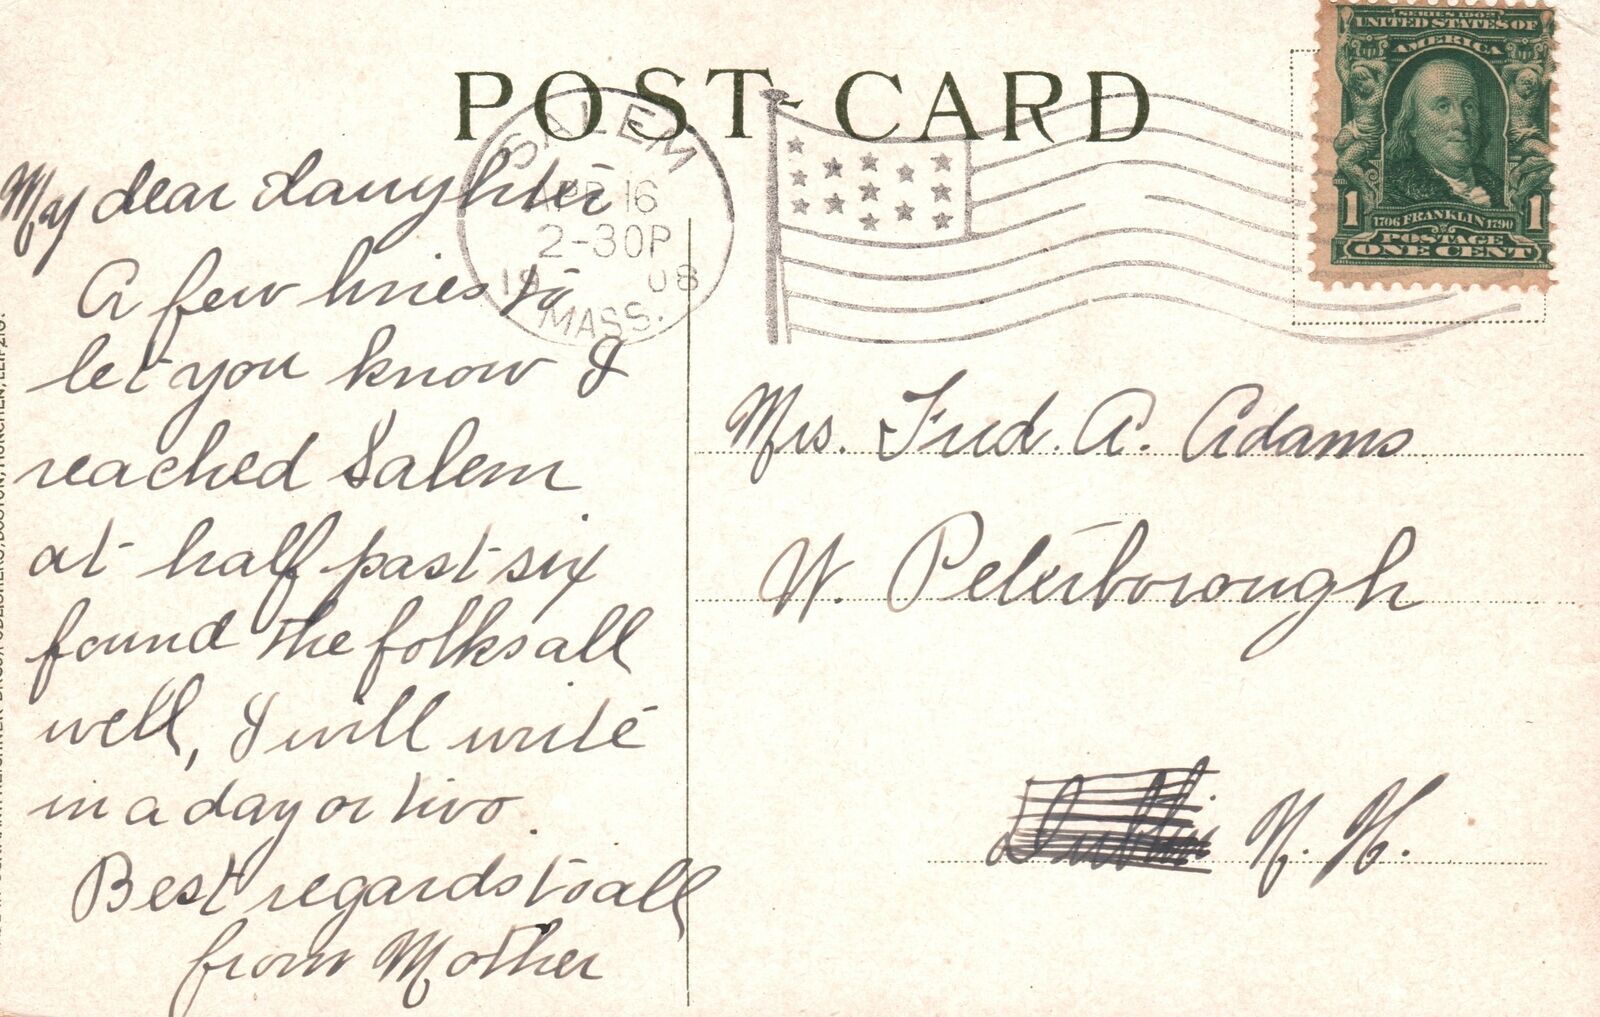 POST-CARD
SERIES 1902
UNITED STATES OF
AMERICA
1 1706 FRANKLIN 1790 1
POSTAGE
ONE CENT
SALEM
APR 16
2-30P
1908
MASS.
My dear daughter
A few lines to
let you know I
reached Salem
at half past six
found the folks all
well, I will write
in a day or two.
Best regards to all
from Mother
Mrs. Fred. A. Adams
W. Peterborough
Dublin N. H.
BOSTON, MÜNCHEN, LEIPZIG.